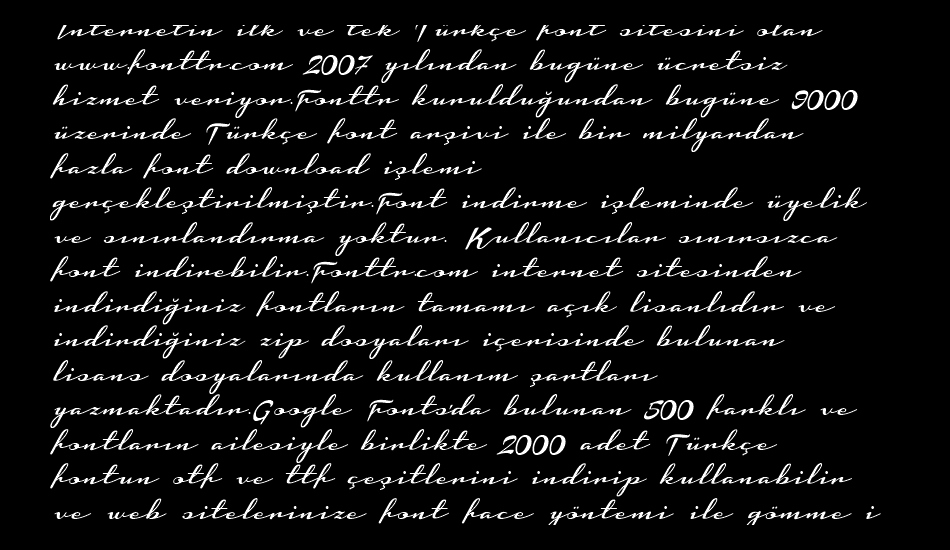 İnternetin ilk ve tek Türkçe font sitesini olan
www.fonttr.com 2007 yılından bugüne ücretsiz
hizmet veriyor.Fonttr kurulduğundan bugüne 9000
üzerinde Türkçe font arşivi ile bir milyardan
fazla font download işlemi
gerçekleştirilmiştir.Font indirme işleminde üyelik
ve sınırlandırma yoktur. Kullanıcılar sınırsızca
font indirebilir.Fonttr.com internet sitesinden
indirdiğiniz fontların tamamı açık lisanlıdır ve
indirdiğiniz zip dosyaları içerisinde bulunan
lisans dosyalarında kullanım şartları
yazmaktadır.Google Fonts'da bulunan 500 farklı ve
fontların ailesiyle birlikte 2000 adet Türkçe
fontun otf ve ttf çeşitlerini indirip kullanabilir
ve web sitelerinize font face yöntemi ile gömme i